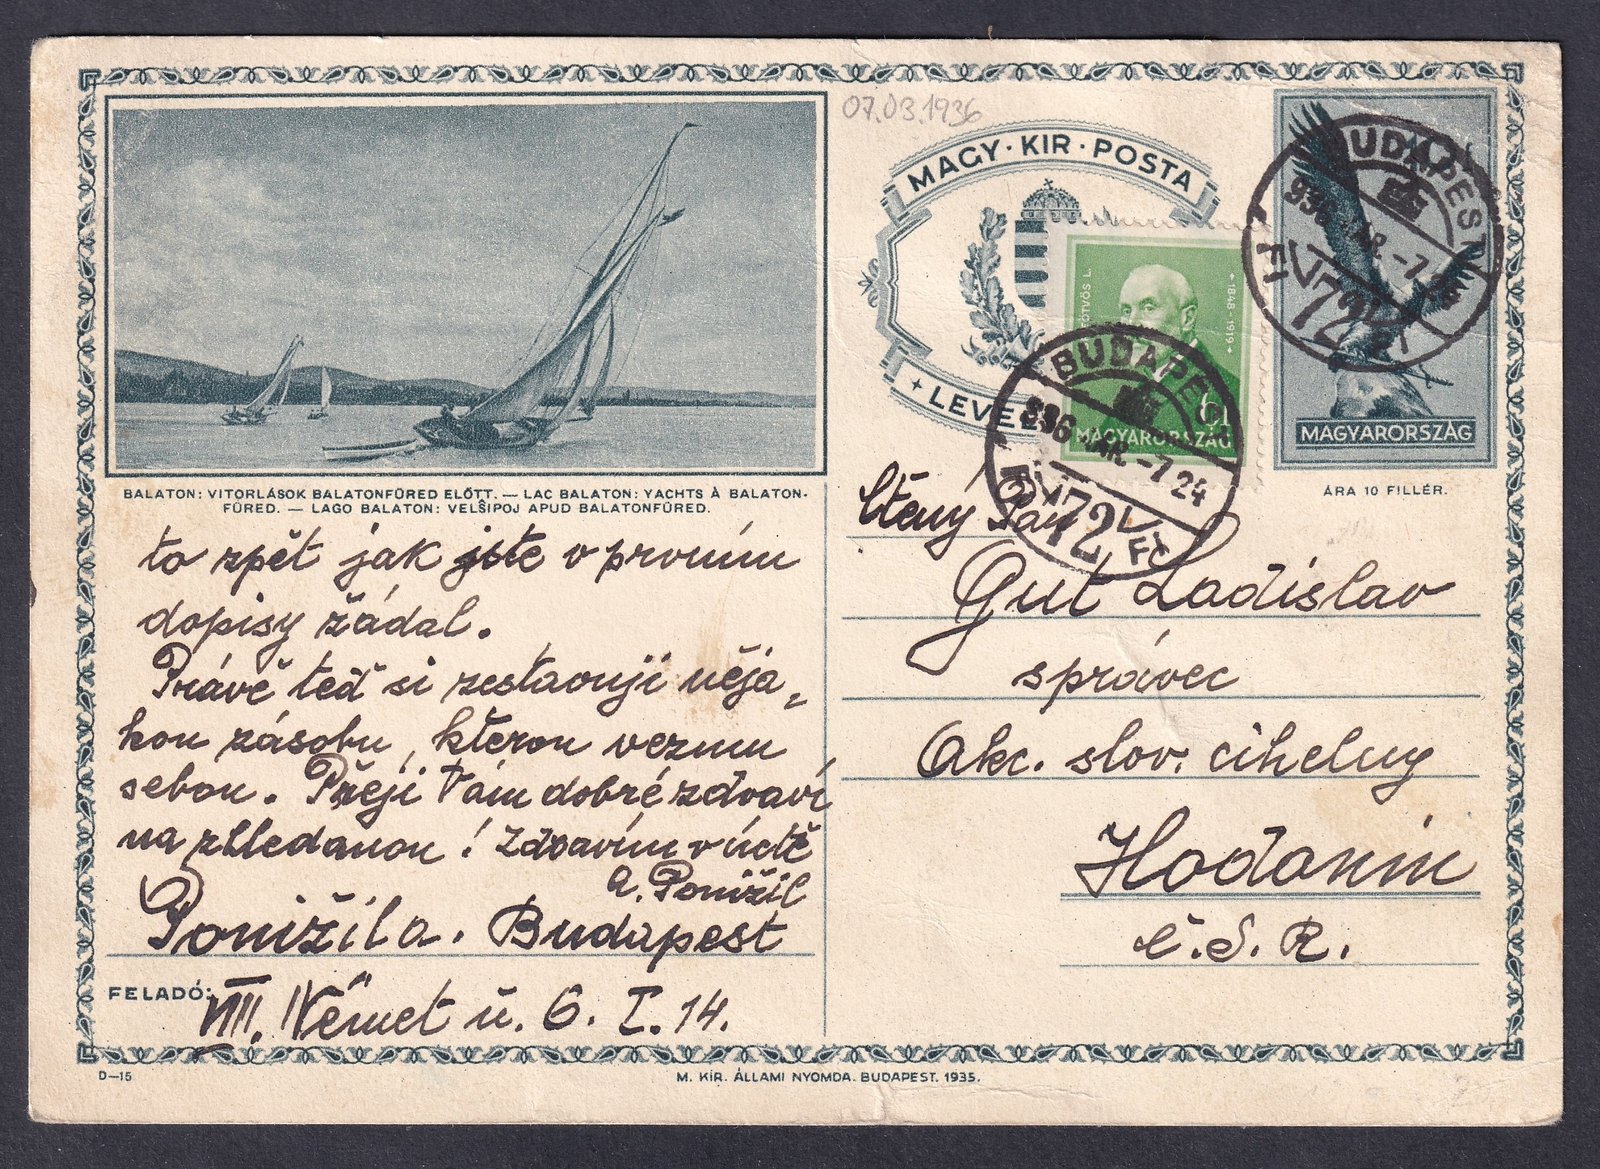 07.03.1936
MAGY·KIR·POSTA
LEVE
EÖTVÖS L.
1848-1919
MAGYARORSZÁG
BUDAPEST
936 MÁR.-7 24
72
BUDAPEST
936 MÁR.-7 24
72
MAGYARORSZÁG
ÁRA 10 FILLÉR.
BALATON: VITORLÁSOK BALATONFÜRED ELŐTT. — LAC BALATON: YACHTS À BALATON-
FÜRED. — LAGO BALATON: VELŜIPOJ APUD BALATONFÜRED.
to zpět jak jste v prvním
dopisy žádal.
Právě teď si zestavuji něja„
kou zásobu, kterou vezmu
sebou. Přeji Vám dobré zdraví
na shledanou! Zdravím v úctě
A. Ponížil
Ponížila. Budapest
FELADÓ:
VIII. Német u. 6. I. 14.
Ctěný Pan
Gut Ladislav
správec
Akc. slov. cihelny
Hodonín
Č.S.R.
D—15
M. KIR. ÁLLAMI NYOMDA. BUDAPEST. 1935.